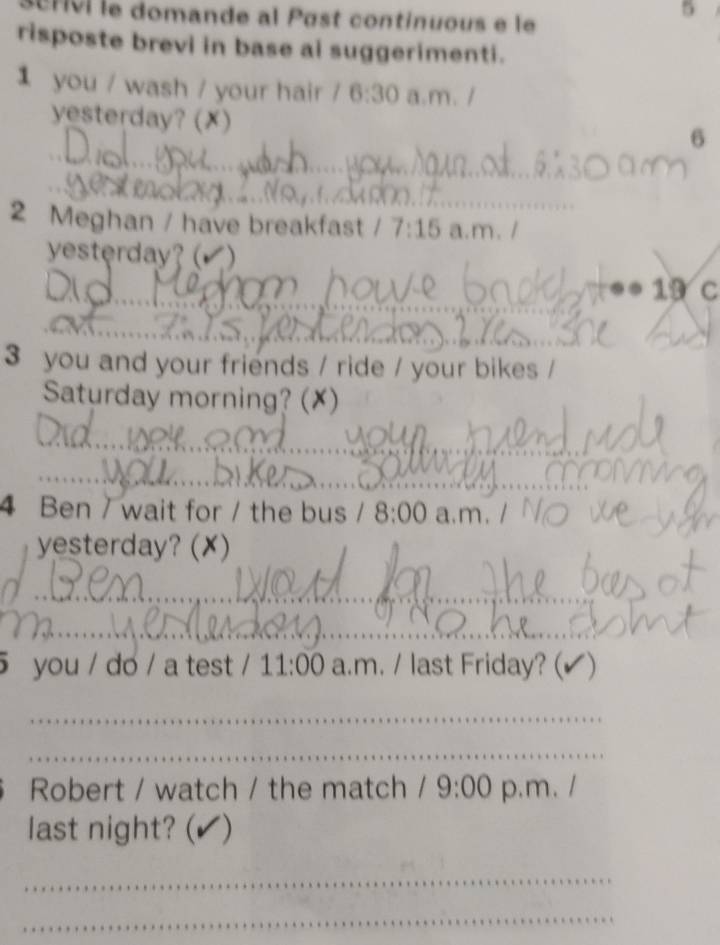 Scrivi le domande al Past continuous e le
risposte brevi in base ai suggerimenti.
5
1 you / wash / your hair / 6:30 a.m. /
yesterday? (✗)
6
Did you wash your hair at 6:30 am
yesterday? No, i didn't
2 Meghan / have breakfast / 7:15 a.m. /
yesterday? (✓)
Did Meghan have
•• 19 C
at 7:15 yesterday? Yes She did
3 you and your friends / ride / your bikes /
Saturday morning? (✗)
Did you and your friend ride
you bikes morning
4 Ben / wait for / the bus / 8:00 a.m. / No we
yesterday? (✗)
Ben for the bus at
yesterday No he
5 you / do / a test / 11:00 a.m. / last Friday? (✓)
Robert / watch / the match / 9:00 p.m. /
last night? (✓)